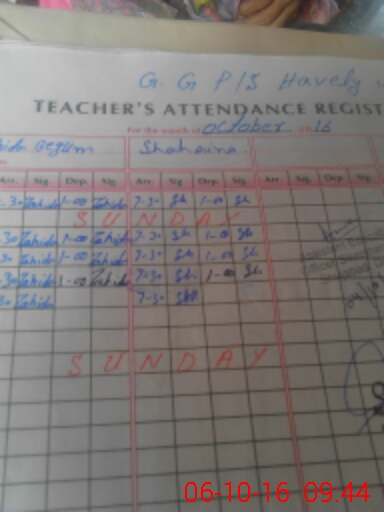 G. G P/S Havely
TEACHER'S ATTENDANCE REGIST
For the month of October 2016
Begum Shahaina
Arr. Sig. Dep. Sig. Arr. Sig. Dep. Sig. Arr. Sig. Dep. Sig.
.30 Zahida 1-00 Zahida 7-30 Sh 1-00 Sh
SUNDAY
.30 Zahida 1-00 Zahida 7-30 Sh 1-00 Sh
.30 Zahida 1-00 Zahida 7-30 Sh 1-00 Sh
.30 Zahida 1-00 Zahida 7-30 Sh 1-00 Sh
.30 Zahida 7-30 Sh
SUNDAY
06-10-16 09:44